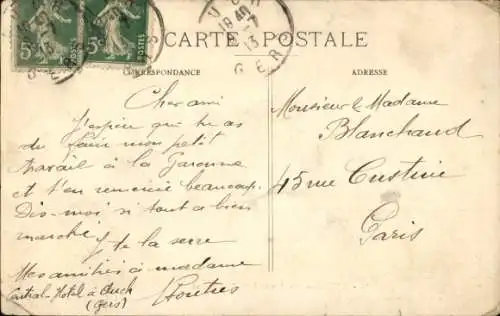 5c
5c
POSTES
19 40
1-7
13
GERS
CARTE POSTALE
CORRESPONDANCE
ADRESSE
Cher ami
J'espère que tu as
du faire mon petit
travail à la Garonne
et t'en remercie beaucoup.
Dis-moi si tout a bien
marché
de la serre
Mes amitiés à madame
Central-Hotel à Auch
(Gers)
Monsieur & Madame
Blanchaud
45 rue Custine
Paris